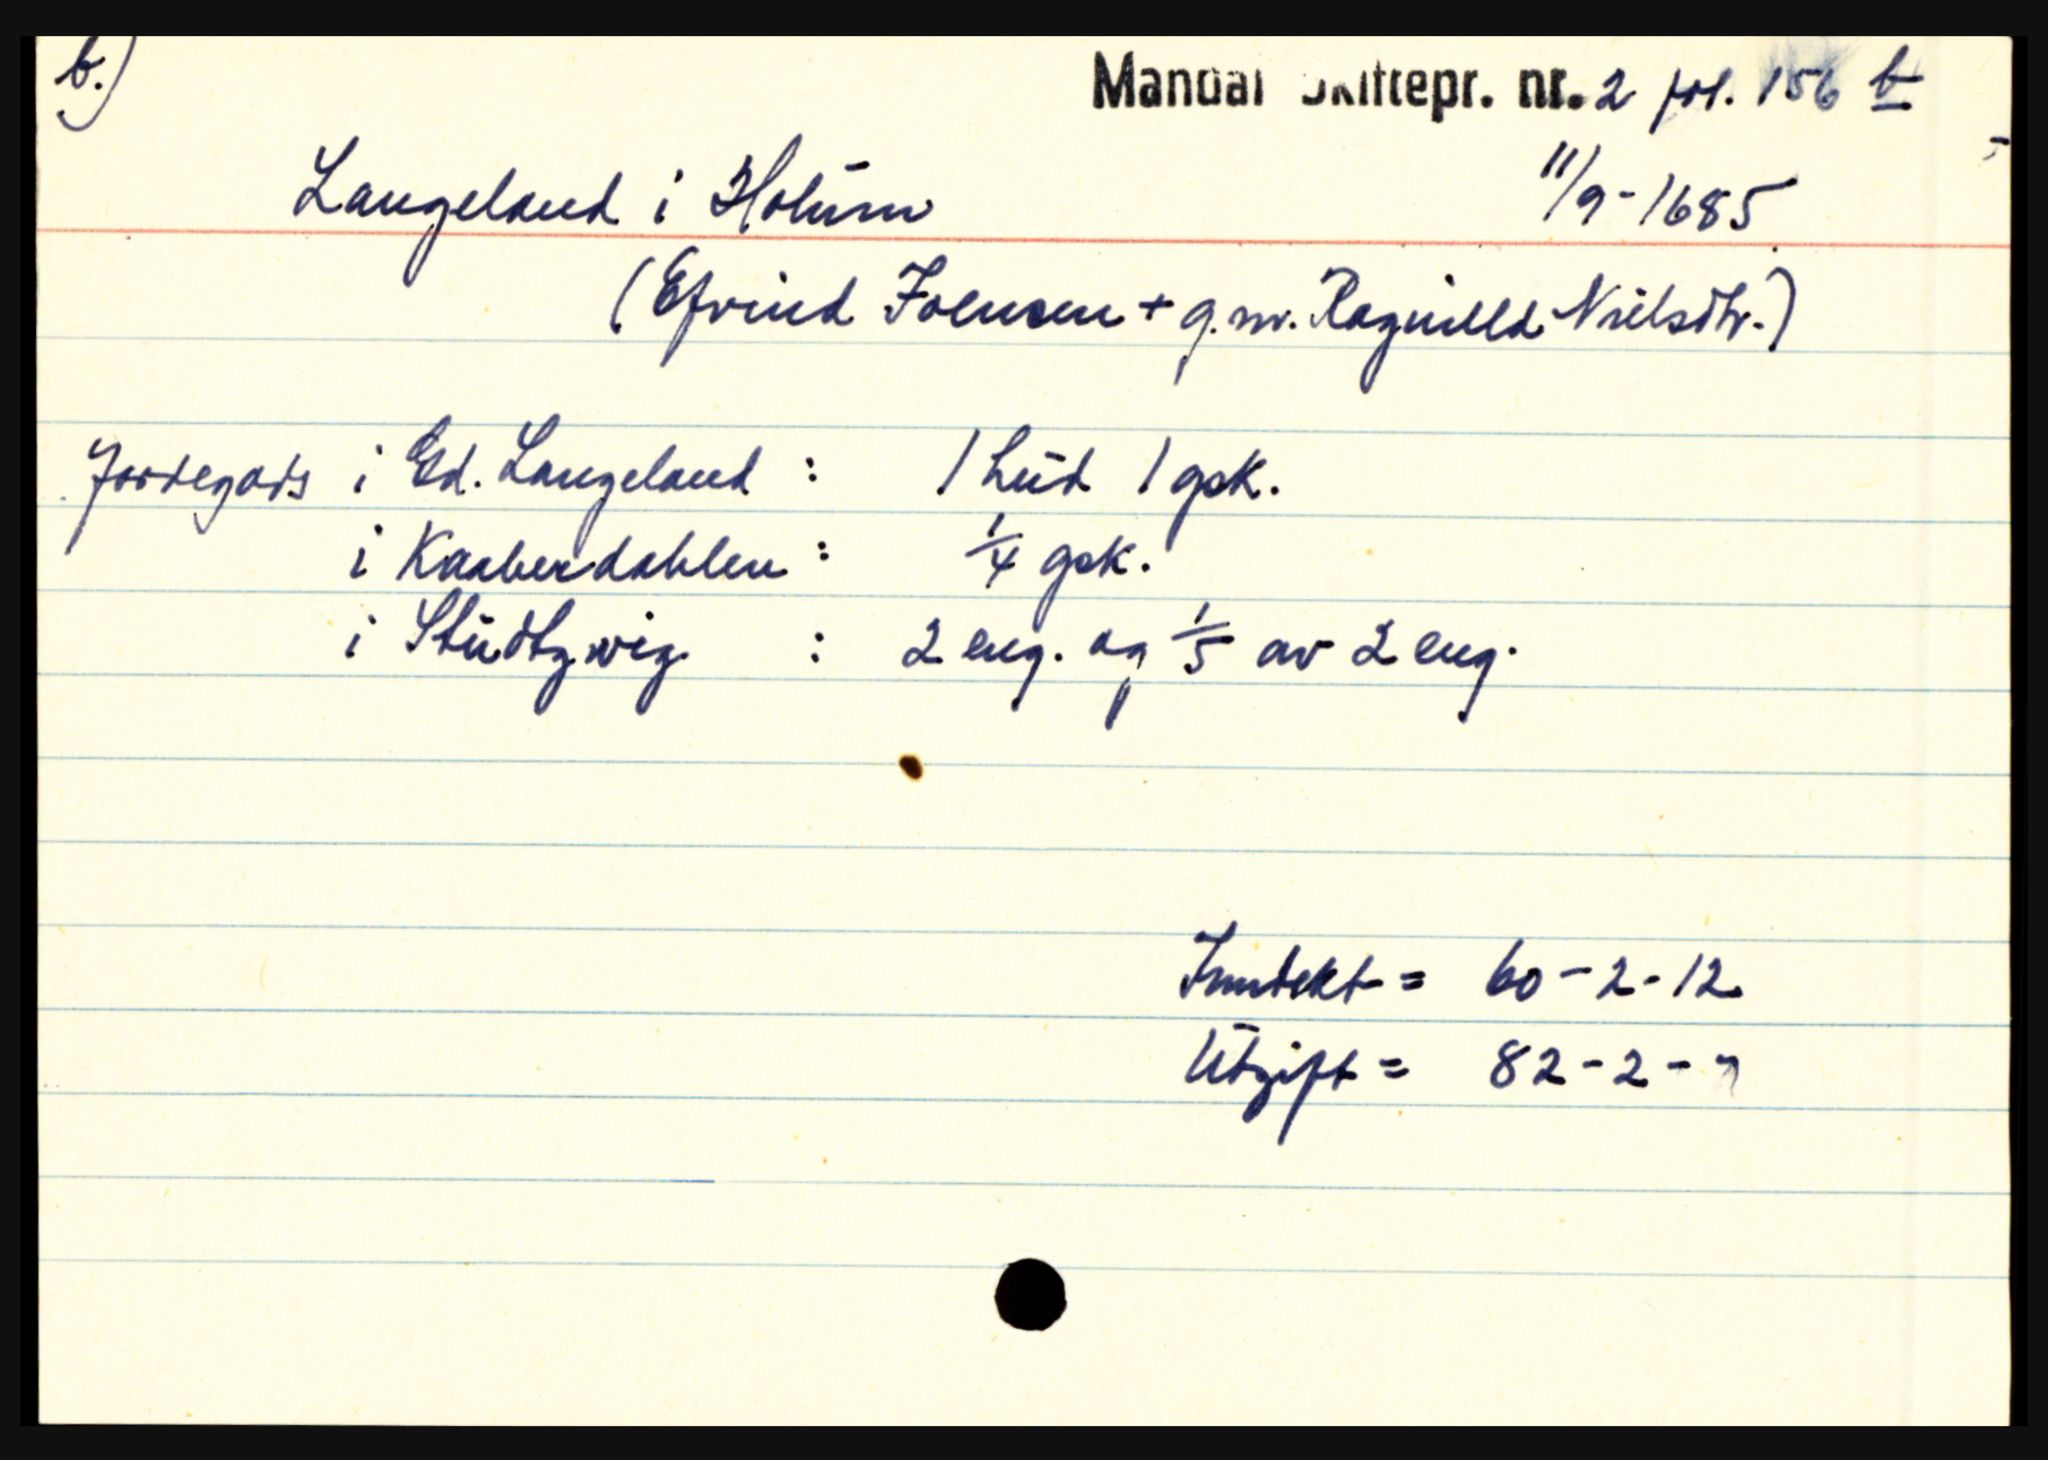 b.) Mandal Skiftepr. nr. 2 fol. 156 b
Langeland i Holum 11/9-1685
(Efvind Joensen + g.m. Ragnilld Nielsdtr.)
Jordegods i Gd. Langeland : 1 hud 1 gsk.
i Kaaberdahlen : 1/4 gsk.
i Studtzwig : 2 eng. og 1/5 av 2 eng.
Inntekt = 60-2-12
Utgift = 82-2-?